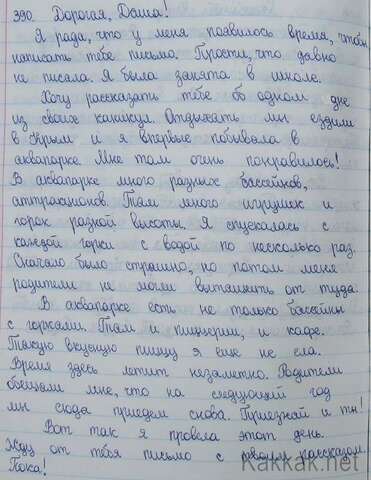 390 Дорогая, Даша!
Я рада, что у меня появилось время, чтобы
написать тебе письмо. Прости, что давно
не писала. Я была занята в школе.
Хочу рассказать тебе об одном дне
из своих каникул. Отдыхать мы ездили
в Крым и я впервые побывала в
аквапарке. Мне там очень понравилось!
В аквапарке много разных бассейнов,
аттракционов. Там много игрушек и
горок разной высоты. Я спускалась с
каждой горки с водой по несколько раз.
Сначало было страшно, но потом меня
родители не могли вытащить от туда.
В аквапарке есть не только бассейны
с горками. Там и пиццерии, и кафе.
Такую вкусную пиццу я еще не ела.
Время здесь летит незаметно. Родители
обещали мне, что на следующий год
мы сюда приедем снова. Приезжай и ты!
Вот так я провела этот день.
Жду от тебя письмо с своим рассказом.
Пока!
Kakkak.net